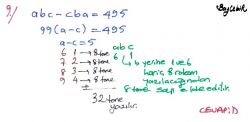 9/ abc - cba = 495
99(a-c) = 495
a-c = 5
a b c
6 1 → 8 tane
7 2 → 8 tane
8 3 → 8 tane
9 4 → 8 tane
6 ( ) 1 → b yerine 1 ve 6
hariç 8 rakam
yazılacağından
8 tane sayı elde edilir.
32 tane
yazılır.
CEVAP: D